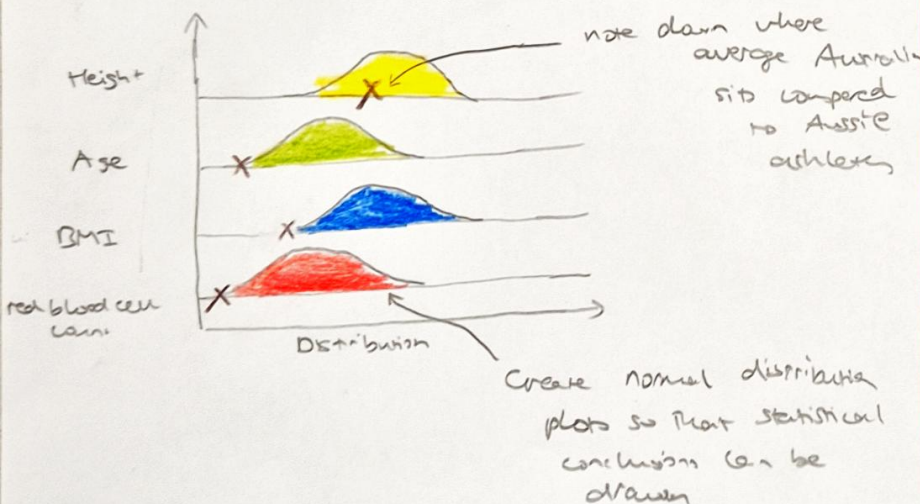 Height
Age
BMI
red blood cell
Distribution
note down where
average
sits compared
to Aussie
athletes
Create normal distribution
plots so that statistical
conclusions can be
drawn